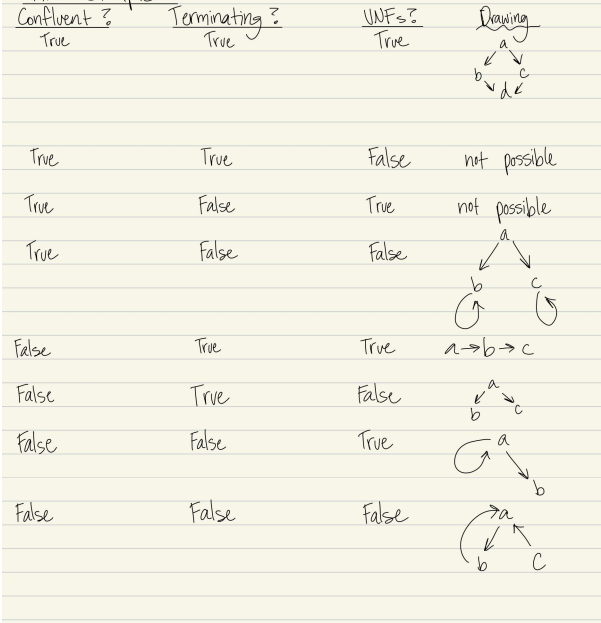 Confluent ? Terminating ? UNFs? Drawing
True True True a
b c
d
True True False not possible
True False True not possible
True False False a
b c
False True True a → b → c
False True False a
b c
False False True a
b
False False False a
b c